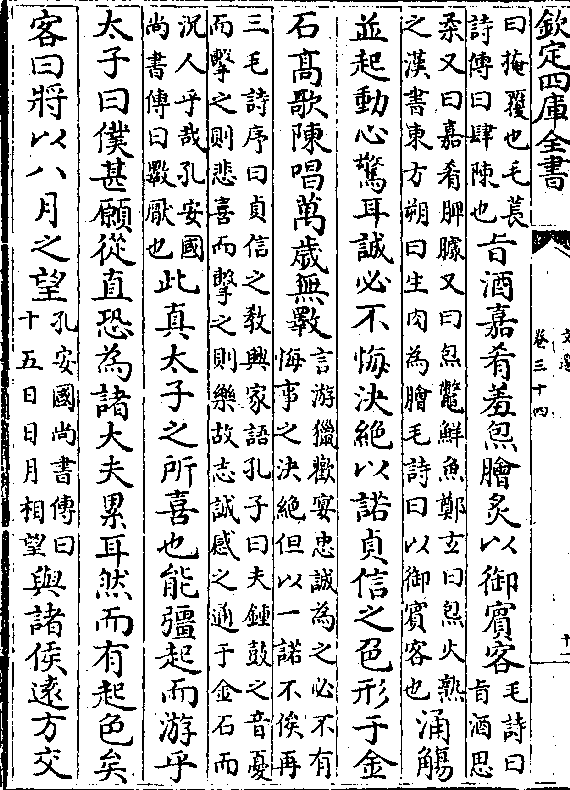 欽定四庫全書
文選
卷三十四
十
曰掩覆也毛萇
詩傳曰肆陳也
旨酒嘉肴羞炰膾炙以御賓客
毛詩曰
旨酒思
柔又曰嘉肴脾臄又曰炰鼈鮮魚鄭玄曰炰火熟
之漢書東方朔曰生肉為膾毛詩曰以御賓客也
涌觴
並起動心驚耳誠必不悔決絶以諾貞信之色形于金
石髙歌陳唱萬歲無斁
言游獵歡宴忠誠為之必不有
悔事之決絶但以一諾不俟再
三毛詩序曰貞信之教興家語孔子曰夫鍾鼓之音憂
而擊之則悲喜而擊之則樂故志誠感之通于金石而
況人乎哉孔安國
尚書傳曰斁厭也
此真太子之所喜也能彊起而游乎
太子曰僕甚願從直恐為諸大夫累耳然而有起色矣
客曰將以八月之望
孔安國尚書傳曰
十五日日月相望
與諸侯逺方交